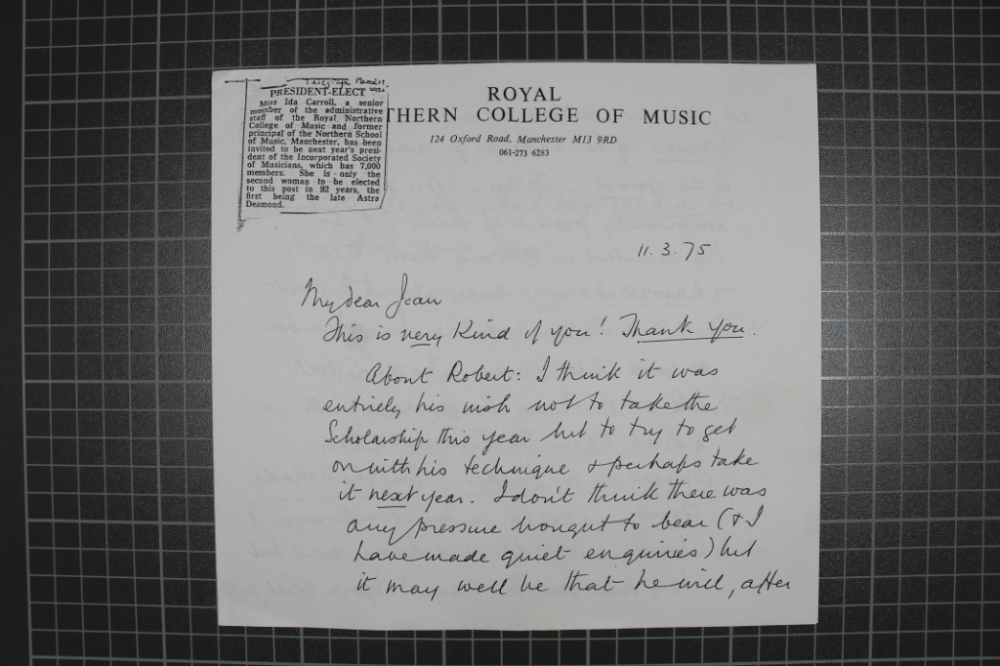 Telegraph
PRESIDENT-ELECT
Miss Ida Carroll, a senior
member of the administrative
staff of the Royal Northern
College of Music and former
principal of the Northern School
of Music, Manchester, has been
invited to be next year's presi-
dent of the Incorporated Society
of Musicians, which has 7,000
members. She is only the
second woman to be elected
to this post in 92 years, the
first being the late Astra
Desmond.
ROYAL
THERN COLLEGE OF MUSIC
124 Oxford Road, Manchester M13 9RD
061-273 6283
11.3.75
My dear Joan
This is very kind of you! Thank you.
About Robert: I think it was
entirely his wish not to take the
Scholarship this year but to try to get
on with his technique & perhaps take
it next year. I don't think there was
any pressure brought to bear (& I
have made quiet enquiries) but
it may well be that he will, after